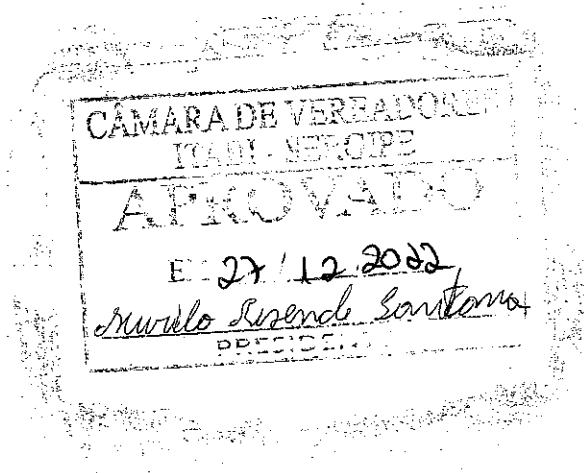 CÂMARA DE VEREADORES
ITABI - SERGIPE
APROVADO
E 27/12.2022
Murilo Resende Santana
PRESIDEN